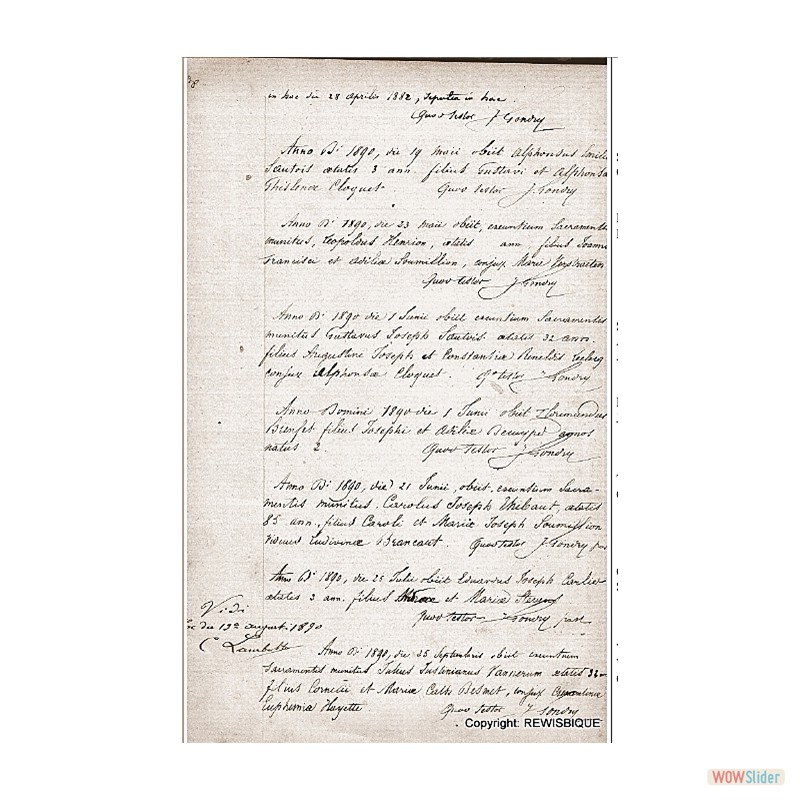 in hoc die 28 aprilis 1882, sepultus in hoc.
Quod testor J Gondry
Anno Di 1890, die 19 maii obiit Alphonsus Emilius
Sautois aetatis 3 ann. filius Gustavi et Alphonsa
Ghislenae Cloquet. Quod testor J. Gondry
Anno Di 1890, die 23 maii obiit, exeuntium Sacramentis
munitus, Leopoldus Henrion, aetatis ann filius Joannis
Francisci et Adiliae Soumillion, conjux Mariae Verstraeten
Quod testor J Gondry
Anno Di 1890 die 1 Junii obiit exeuntium Sacramentis
munitus Gustavus Joseph Sautois aetatis 32 ann.
filius Augustini Joseph et Constantiae Leclerq
conjux Alphonsae Cloquet. Qd testor J Gondry
Anno Domini 1890 die 1 Junii obiit
filius Josephi et Adiliae annos
natus 2. Quod testor J Gondry
Anno Di 1890, die 21 Junii, obiit exeuntium Sacra-
mentis munitus. Carolus Joseph Thibaut, aetatis
85 ann. filius Caroli et Mariae Joseph Soumillion
viduus Ludivinae Brancart. Quod testor J. Gondry
Anno Di 1890, die 25 Julii obiit Eduardus Joseph Carlier
aetatis 3 ann. filius et Mariae Stevens
Quod testor J Gondry past
Vidi
hac die 12a augusti 1890
C Lambotte
Anno Di 1890, die 25 Septembris obiit exeuntium
Sacramentis munitus Julius Justinianus Vannerum aetatis 32
filius Cornelii et Mariae Cath Desmet, conjux
Euphemia Hayette Quod testor J Gondry
Copyright: REWISBIQUE
WOWSlider